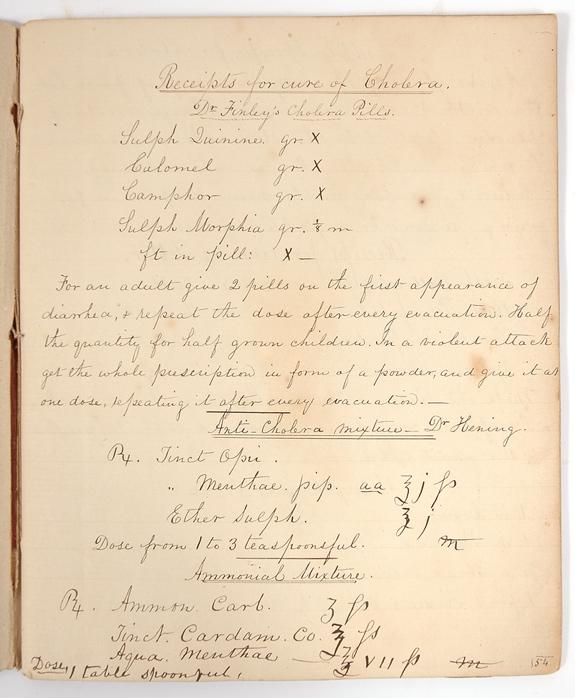 Receipts for cure of Cholera.
Dr Finley's Cholera Pills.
Sulph Quinine gr. X
Calomel gr. X
Camphor gr. X
Sulph Morphia gr. ⅛ m
ft in pill: X —
For an adult give 2 pills on the first appearance of
diarrhea, & repeat the dose after every evacuation. Half
the quantity for half grown children. In a violent attack
get the whole prescription in form of a powder, and give it at
one dose, repeating it after every evacuation. —
Anti-Cholera mixture — Dr Hening.
℞. Tinct Opii.
" Menthae pip. aa ʒj ſs
Ether Sulph. ʒj
Dose from 1 to 3 teaspoonsful. m
Ammonial Mixture.
℞. Ammon. Carb. ʒ ſs
Tinct. Cardam. Co. ℥ ſs
Aqua. Menthae — ℥ VII ſs m
Dose, 1 table spoonful,
54